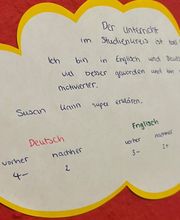 Der Unterricht
im Studienkreis ist toll
Ich bin in Englisch und
viel besser geworden und
motivierter.
Susan kann super erklären.
Deutsch Englisch
vorher nachher vorher nachher
4- 2 3- 2+